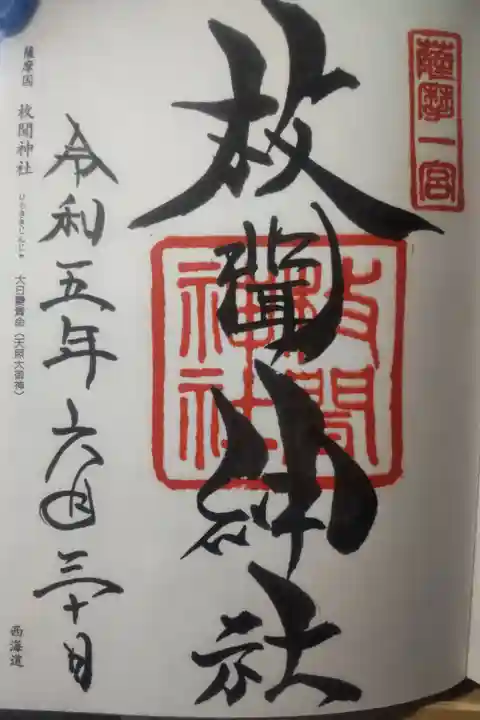 薩摩一宮
枚聞神社
枚聞神社
令和五年六月三十日
薩摩国 枚聞神社 ひらききじんじゃ 大日孁貴命(天照大御神)
西海道